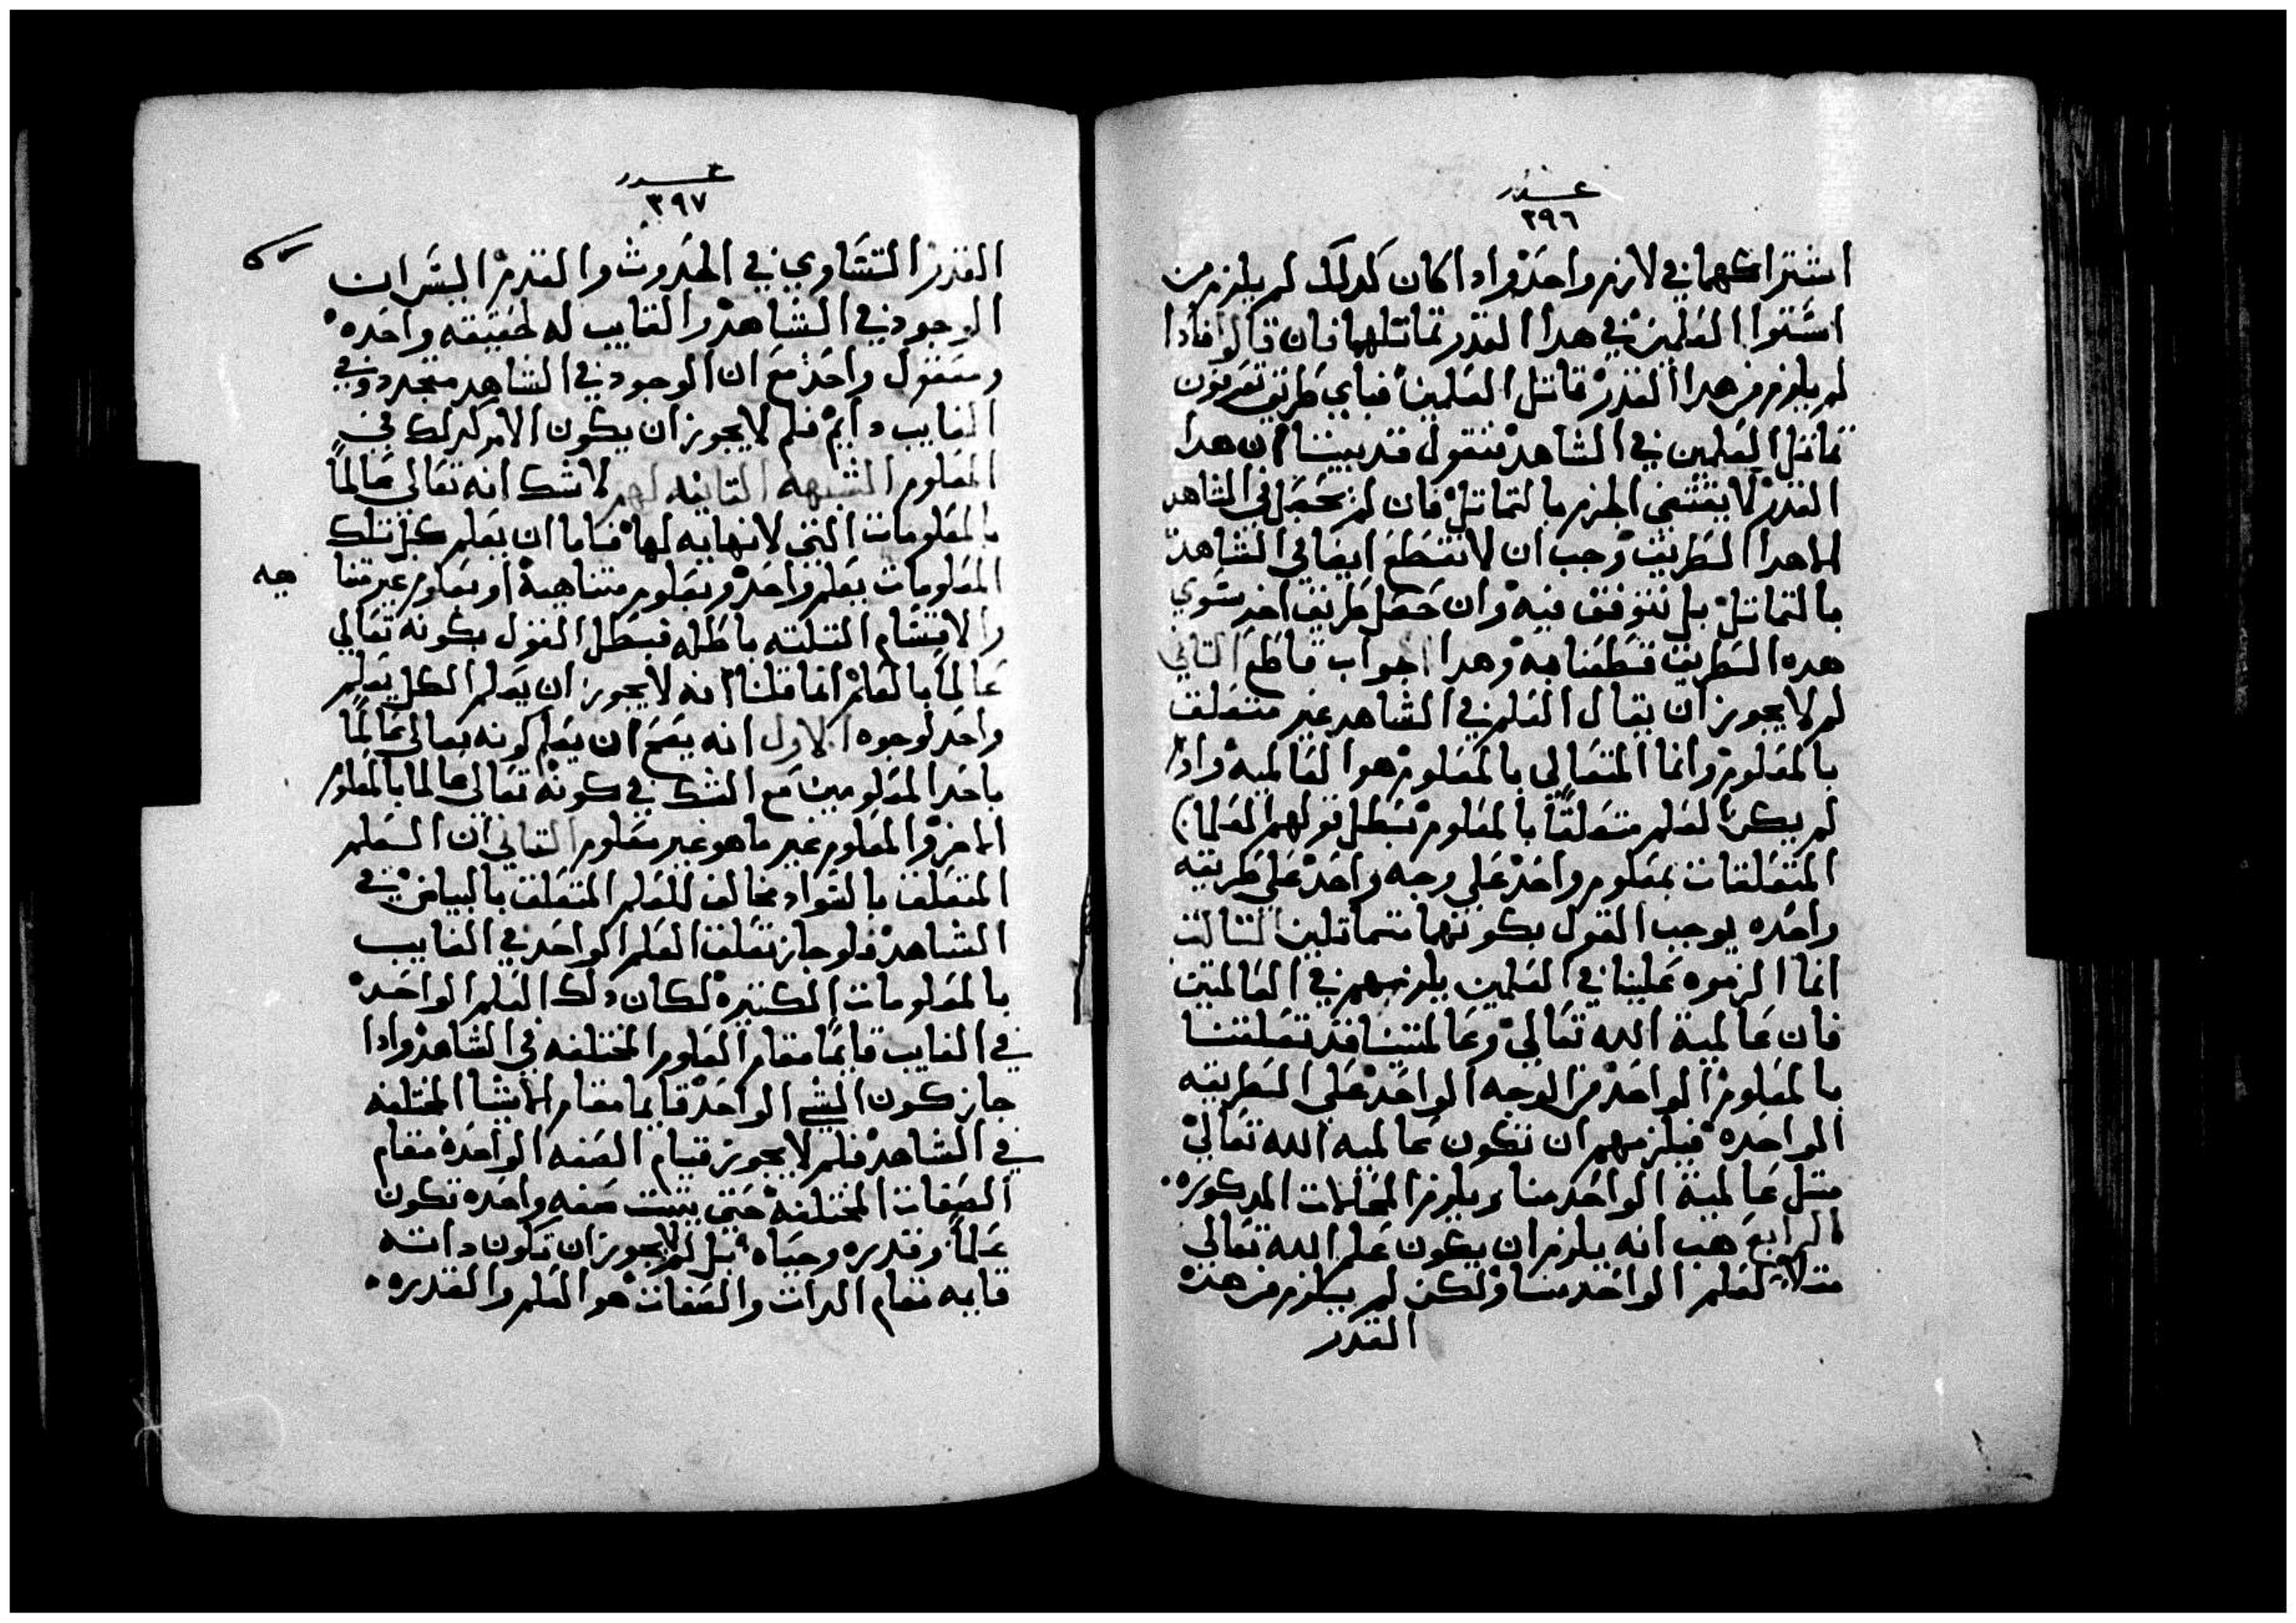 عدد
٣٩٦
اشتراكهما في لازم واحد واذا كان كدلك لم يلزم من
استوا العلمين في هدا القدر تماتلهما فان قالوا فادا
لم يلزم من هدا القدر تماتل العلمين فباي طريق تعرفون
تماتل العلمين في الشاهد فنقول قد بيننا ان هدا
القدر لا يقتضي الجزم بالتماتل فان لم يحصل في الشاهد
الا هدا الطريق وجب ان لا نقطع ايضا في الشاهد
بالتماتل بل نتوقف فيه وان حصل طريق اخر سوي
هده الطريق قطعنا به وهدا جواب قاطع التاني
لم لا يجوز ان يقال العلم في الشاهد غير متعلق
بالمعلوم وانما المتعالي بالمعلوم هو العالميه وادا
لم يكن العلم متعلقا بالمعلوم بطل قولهم العلمان
المتعلقان بمعلوم واحد علي وجه واحد علي طريقه
واحده يوجب القول بكونهما متماتلين التالت
انما الزموه علينا في العلمين يلزمهم في العالمين
فان عالمية الله تعالي وعالمتينا قد تعلقتا
بالمعلوم الواحد من الوجه الواحد علي الطريقه
الواحده فيلزمهم ان تكون عالميه الله تعالي
متل عالمية الواحد منا ويلزم المحالات المدكوره
الرابع هب انه يلزم ان يكون علم الله تعالي
متلا لعلم الواحد منا ولكن لم يلزم من هدا
القدر
عدد
٣٩٧
القدر التساوي في الحدوث والقدم اليس ان
الوجود في الشاهد والغايب له حقيقه واحده
ومعقول واحد مع ان الوجود في الشاهد متجدد وفي
الغايب دايم فلم لا يجوز ان يكون الامر كدلك في
المعلوم الشبهة التانيه لهم لا شك انه تعالي عالما
بالمعلومات التي لا نهايه لها فاما ان يعلم كل تلك
المعلومات بعلم واحد وبعلوم متناهية او بعلوم غير متنا هيه
والاقسام التلته باطله فبطل القول بكونه تعالي
عالما بالعلم انما قلنا انه لا يجوز ان يعلم الكل بعلم
واحد لوجوه الاول انه يصح ان يعلم كونه تعالي عالما
باحد المعلومين مع الشك في كونه تعالي عالما بالمعلوم
الاخر والمعلوم غير ما هو غير معلوم التاني ان العلم
المتعلق بالسواد مخالف للعلم المتعلق بالبياض في
الشاهد فلو جاز تعلق العلم الواحد في الغايب
بالمعلومات الكتيره لكان دلك العلم الواحد
في الغايب قايما مقام العلوم المختلفه في الشاهد وادا
جاز كون الشي الواحد قايما مقام الاشيا المختلفه
في الشاهد فلم لا يجوز قيام الصفه الواحده مقام
الصفات المختلفه حتي يتبت صفه واحده تكون
علما وقدره وحياه بل لم لا يجوز ان تكون داته
قايمه مقام الدات والصفات هو العلم والقدره